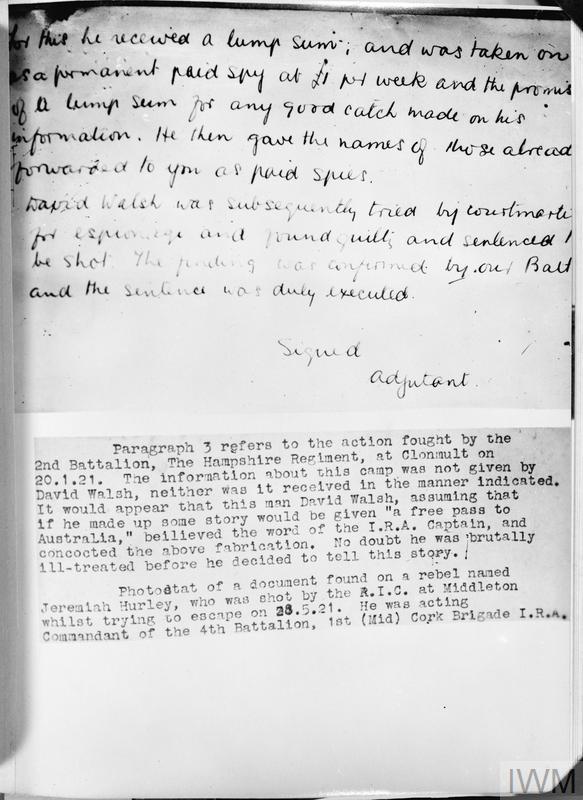 for this he received a lump sum; and was taken on
as a permanent paid spy at £1 per week and the promis
of a lump sum for any good catch made on his
information. He then gave the names of those alread
forwarded to you as paid spies.
David Walsh was subsequently tried by courtmarti
for espionage and found guilty and sentenced t
be shot. The finding was confirmed by our Batt
and the sentence was duly executed.
Signed
Adjutant.
Paragraph 3 refers to the action fought by the
2nd Battalion, The Hampshire Regiment, at Clonmult on
20.1.21. The information about this camp was not given by
David Walsh, neither was it received in the manner indicated.
It would appear that this man David Walsh, assuming that
if he made up some story would be given "a free pass to
Australia," beilieved the word of the I.R.A. Captain, and
concocted the above fabrication. No doubt he was brutally
ill-treated before he decided to tell this story.
Photostat of a document found on a rebel named
Jeremiah Hurley, who was shot by the R.I.C. at Middleton
whilst trying to escape on 28.5.21. He was acting
Commandant of the 4th Battalion, 1st (Mid) Cork Brigade I.R.A.
IWM